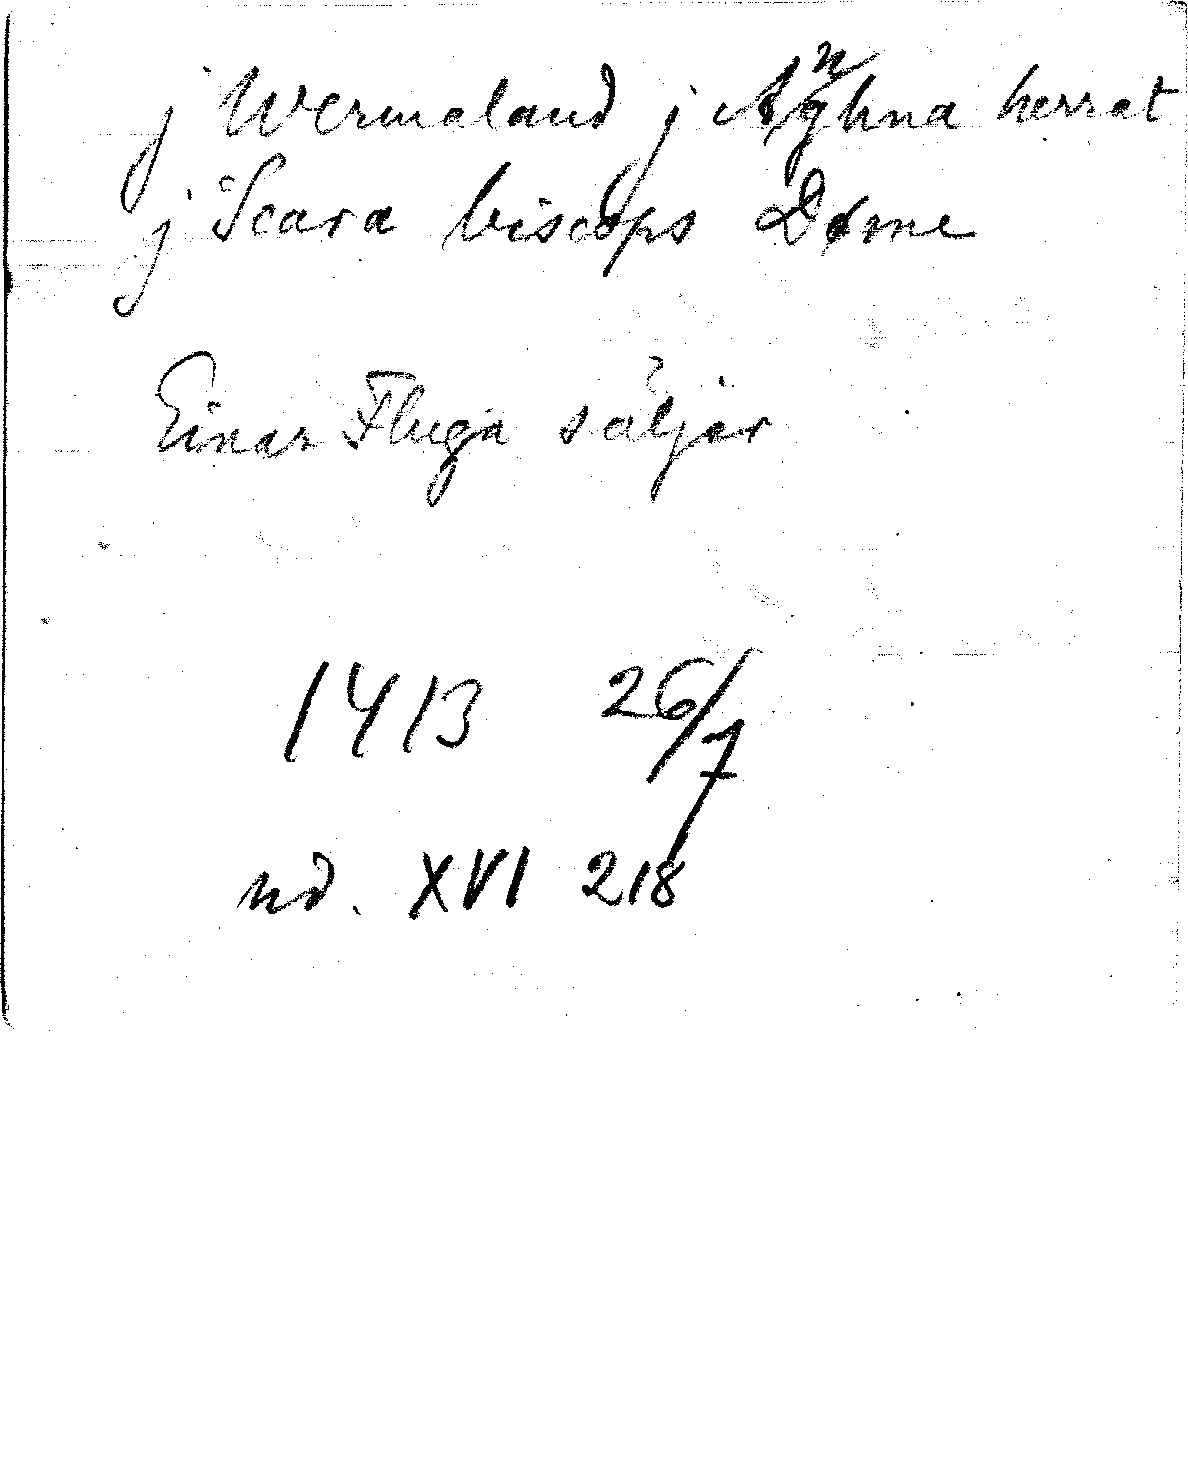 j Wermaland j Anghna herrat
j Scara biscops Døme
Einar Fluga säljer
1413 26/7
nd. XVI 218